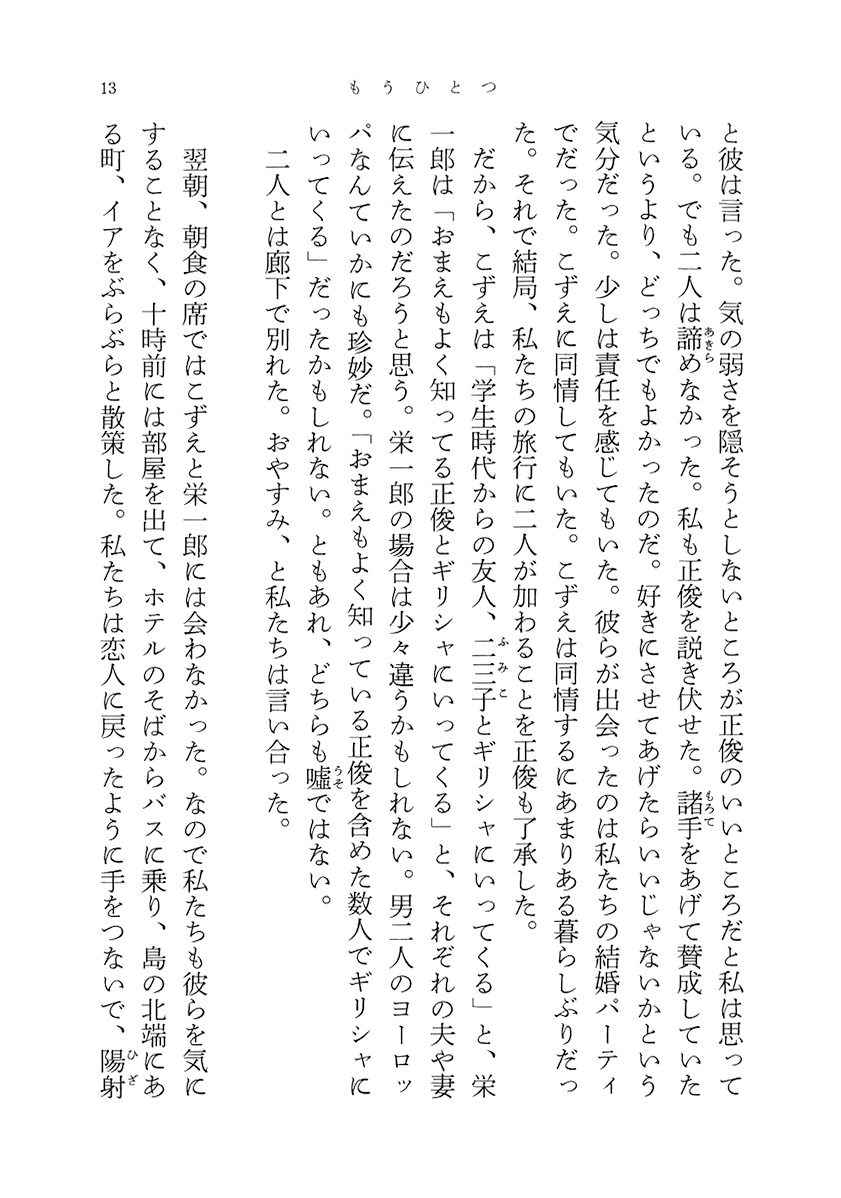 13
もうひとつ
と彼は言った。気の弱さを隠そうとしないところが正俊のいいところだと私は思って
いる。でも二人は諦めなかった。私も正俊を説き伏せた。諸手をあげて賛成していた
というより、どっちでもよかったのだ。好きにさせてあげたらいいじゃないかという
気分だった。少しは責任を感じてもいた。彼らが出会ったのは私たちの結婚パーティ
でだった。こずえに同情してもいた。こずえは同情するにあまりある暮らしぶりだっ
た。それで結局、私たちの旅行に二人が加わることを正俊も了承した。
だから、こずえは「学生時代からの友人、二三子とギリシャにいってくる」と、栄
一郎は「おまえもよく知ってる正俊とギリシャにいってくる」と、それぞれの夫や妻
に伝えたのだろうと思う。栄一郎の場合は少々違うかもしれない。男二人のヨーロッ
パなんていかにも珍妙だ。「おまえもよく知っている正俊を含めた数人でギリシャに
いってくる」だったかもしれない。ともあれ、どちらも嘘ではない。
二人とは廊下で別れた。おやすみ、と私たちは言い合った。
翌朝、朝食の席ではこずえと栄一郎には会わなかった。なので私たちも彼らを気に
することなく、十時前には部屋を出て、ホテルのそばからバスに乗り、島の北端にあ
る町、イアをぶらぶらと散策した。私たちは恋人に戻ったように手をつないで、陽射